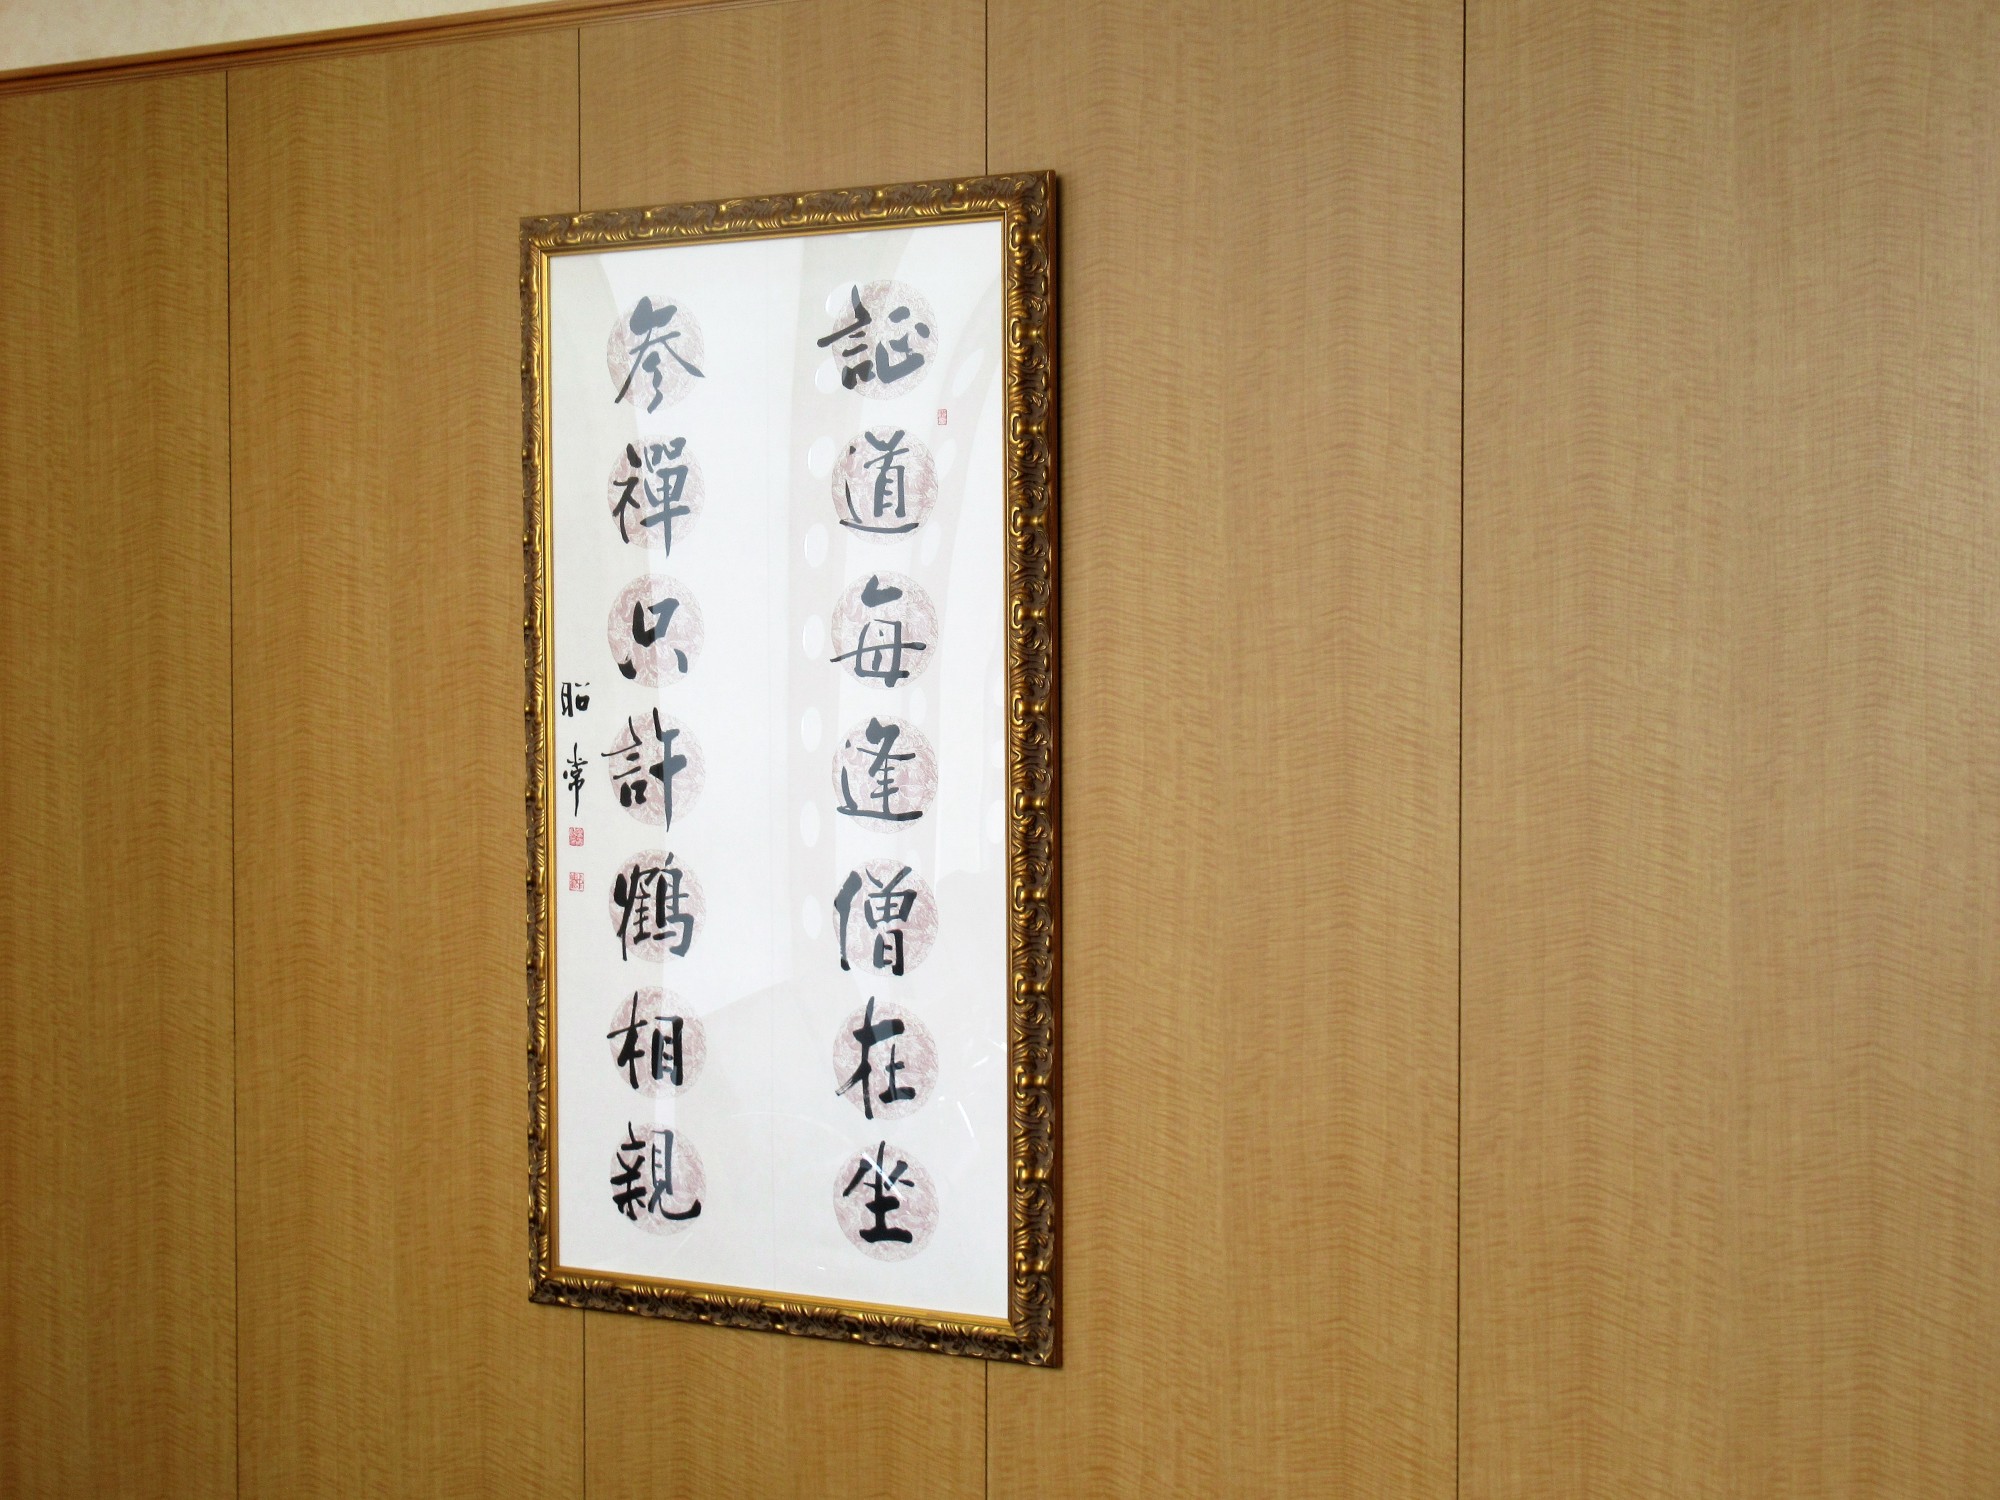 証道每逢僧在坐
参禪只許鶴相親
昭常